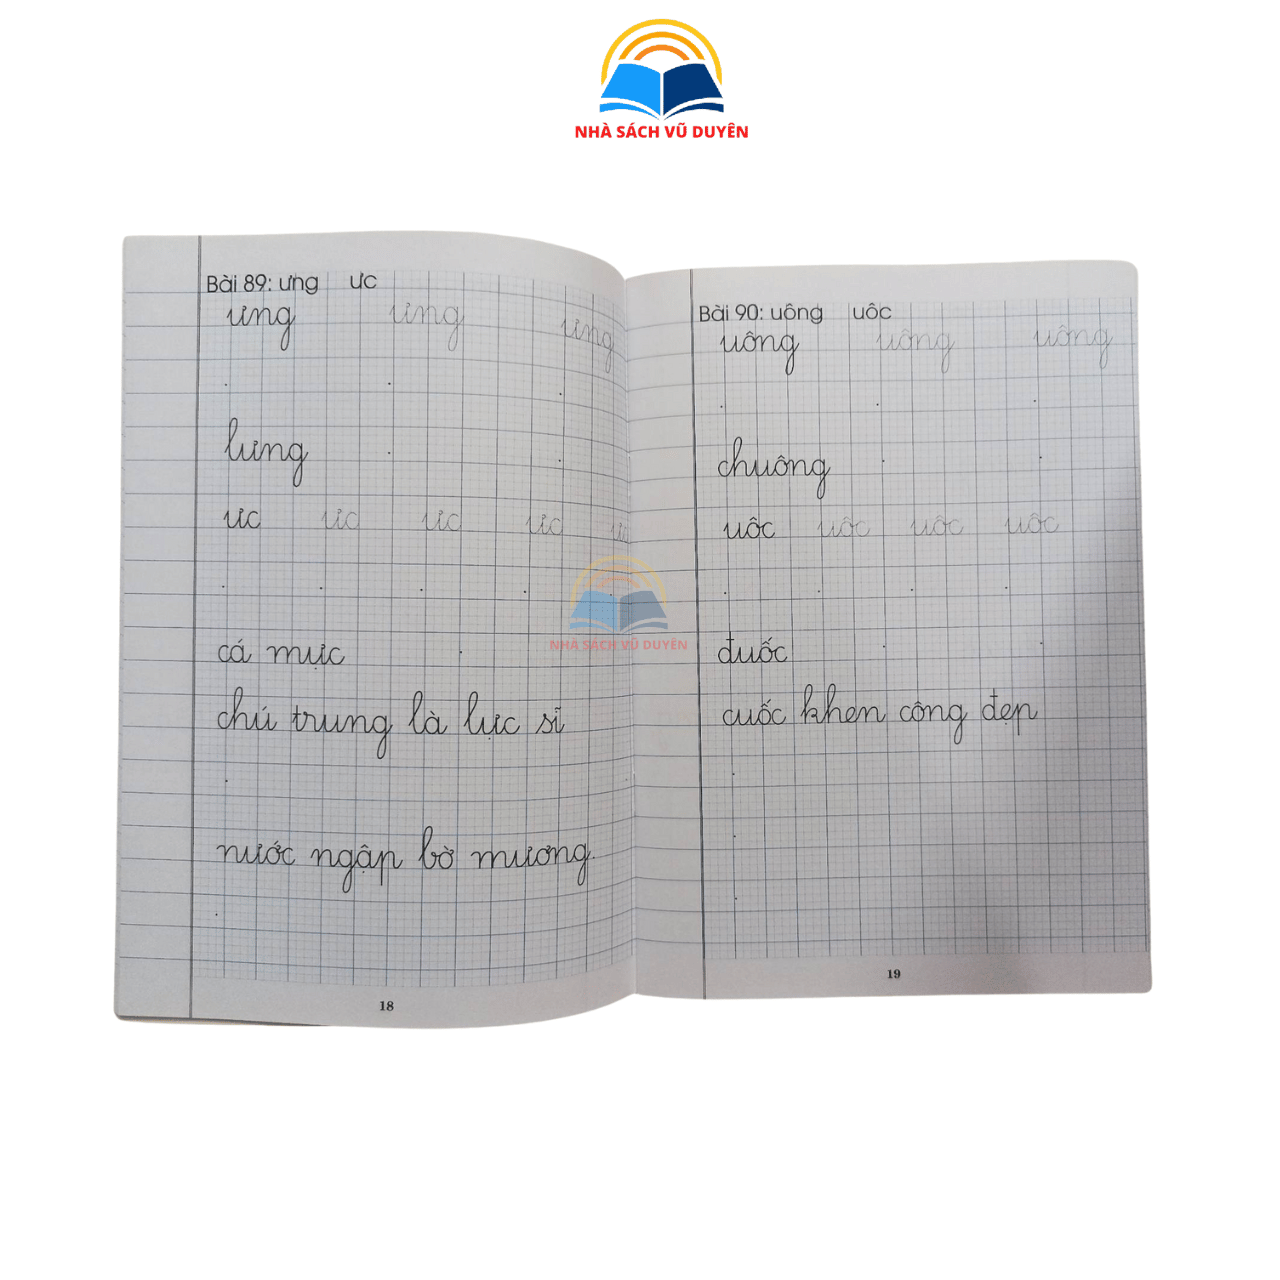 NHÀ SÁCH VŨ DUYÊN
Bài 89: ưng ưc
ưng ưng ưng
lưng
ưc ưc ưc ưc ưc
cá mực
chú trung là lực sĩ
nước ngập bờ mương.
18
Bài 90: uông uôc
uông uông uông
chuông
uôc uôc uôc uôc
đuốc
cuốc khen công đẹp
19
NHÀ SÁCH VŨ DUYÊN